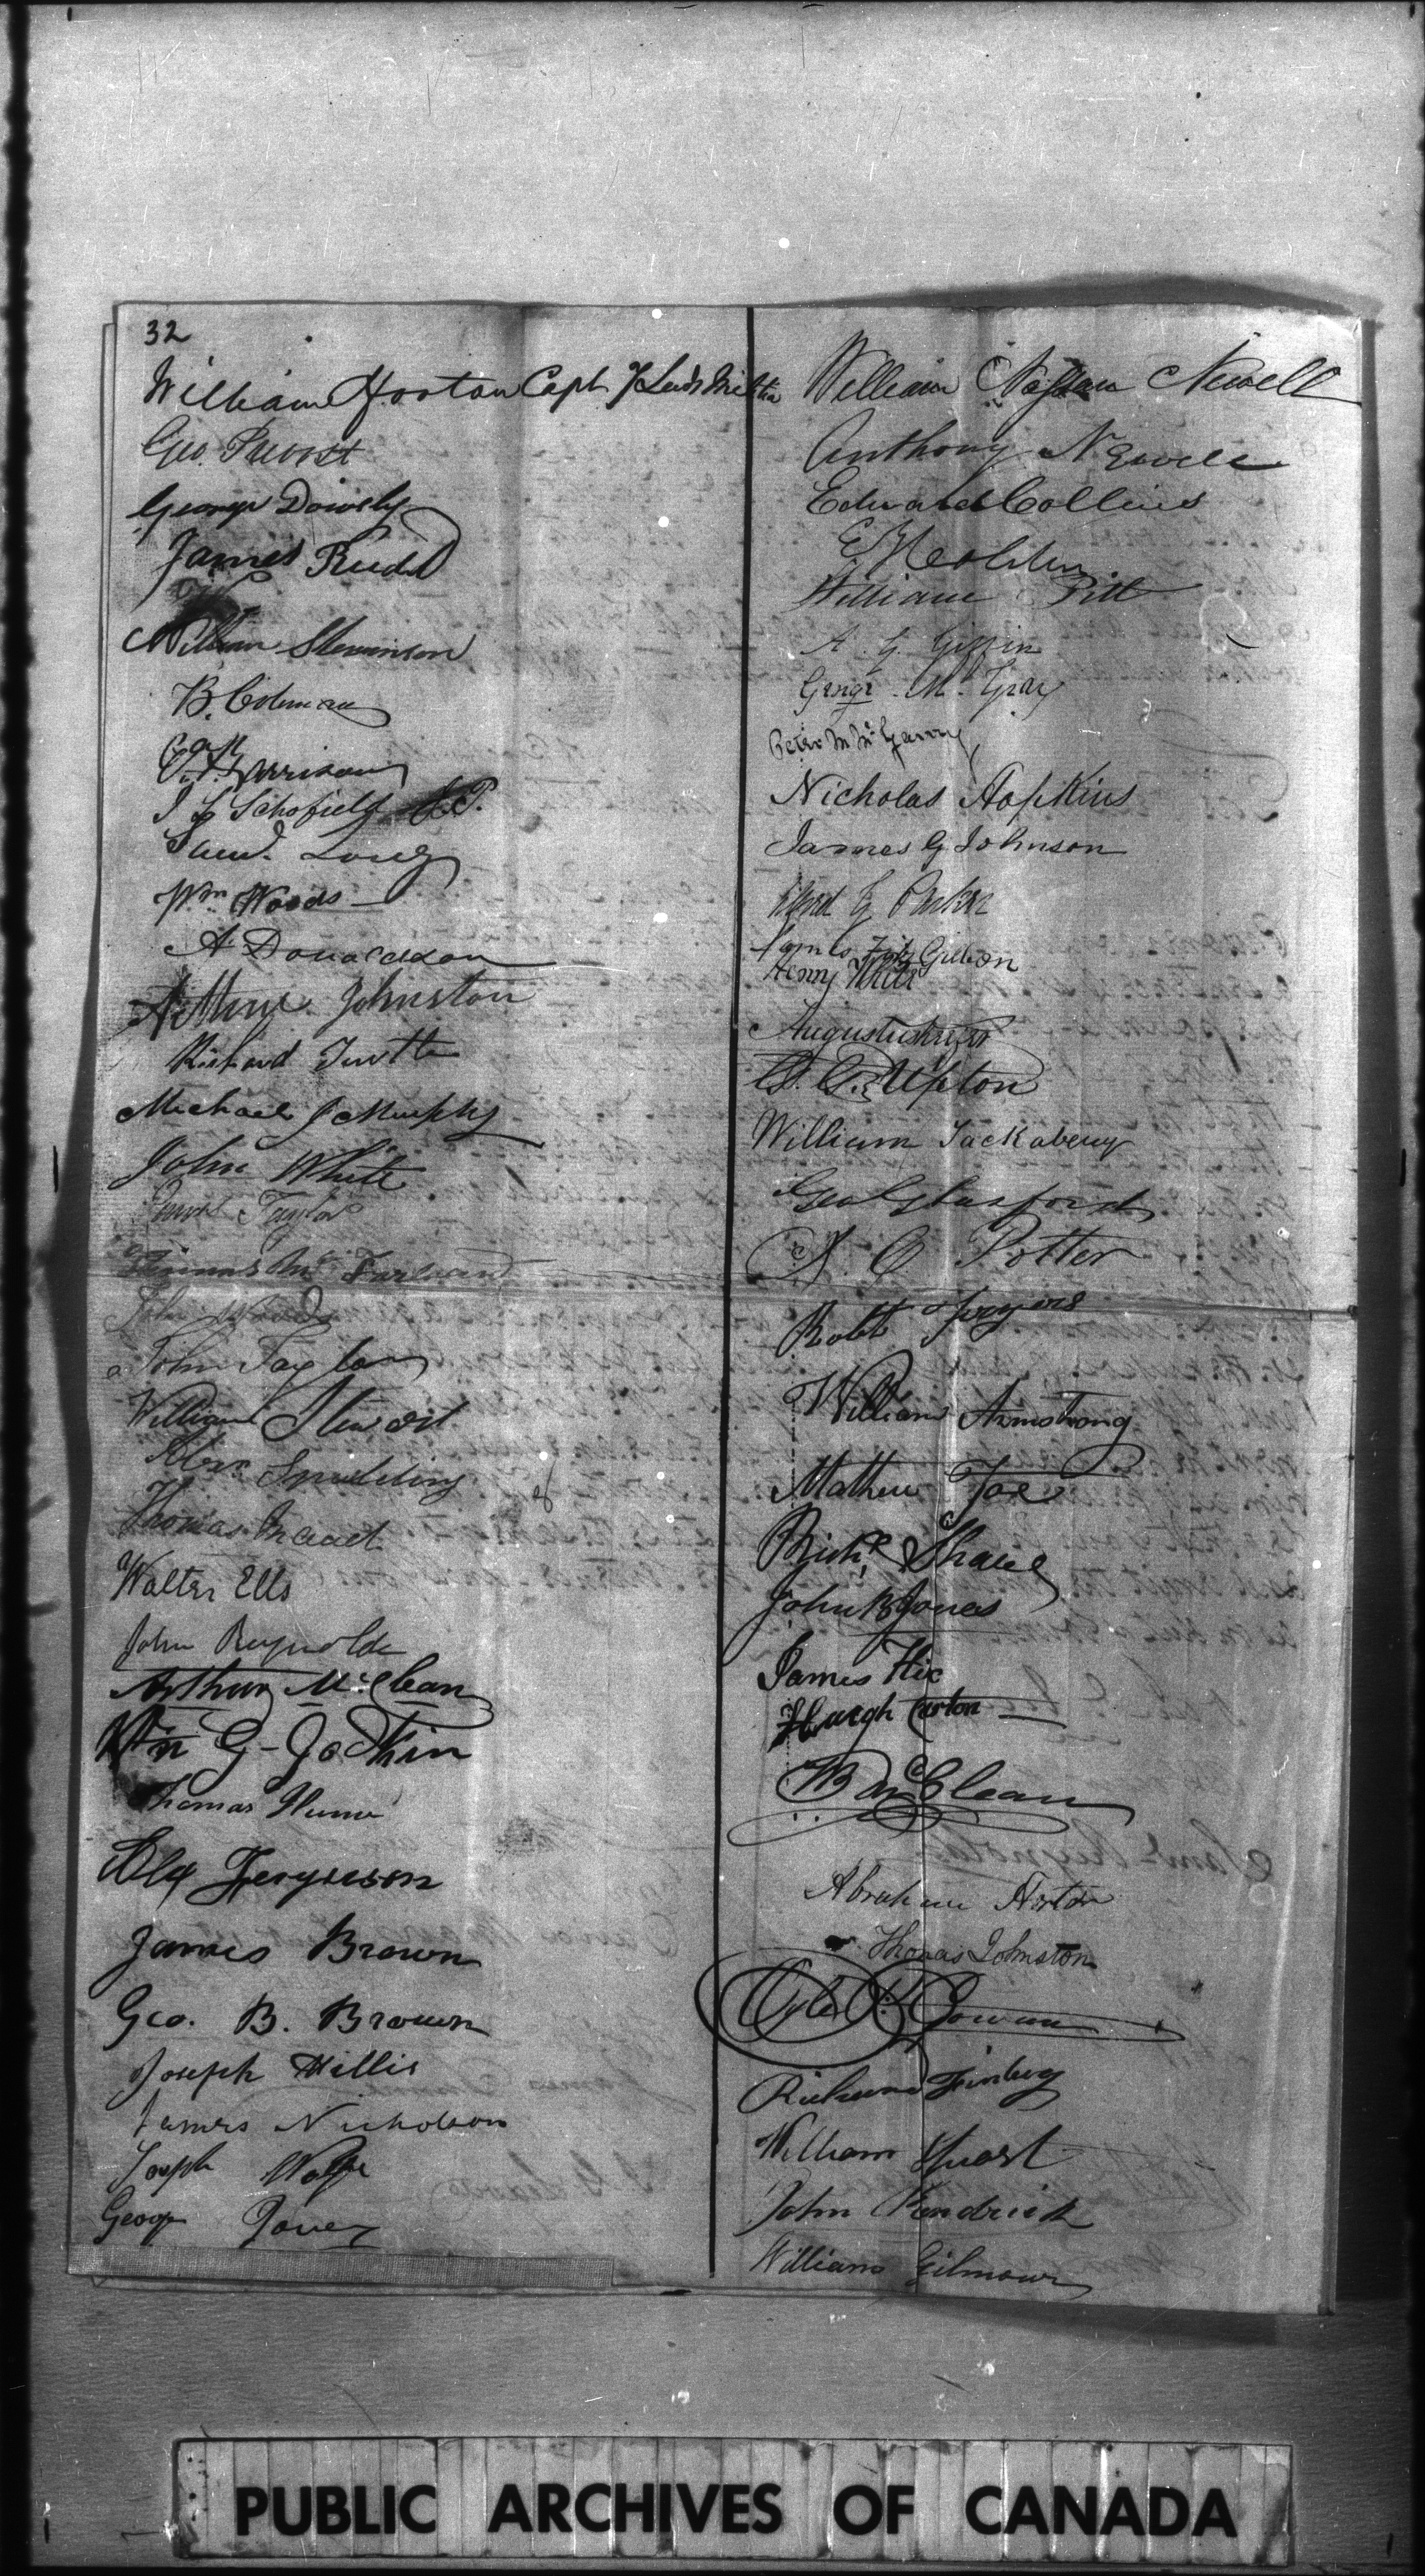 32
William Horton Capt 7 Leeds Militia
Geo. Prevost
George Dowsley
James Rudd
William Stevenson
B. Coleman
Harrison
J L Schofield
Saml. Long
Wm Woods
A Donaldson
Arthur Johnston
Richard Tuttle
Michael J Murphy
John White
James Taylor
Mc Farland
John Woods
John Taylor
William Stewart
Spalding
Thomas
Walter Ells
John Reynolds
Arthur McClean
Wm G - Jo
Thomas Hume
Alex Ferguson
James Brown
Geo. B. Brown
Joseph Willis
James Nicholson
Joseph Wolfe
George Jones
William Nassau Newell
Anthony Newell
Edward Collins
William Pitt
A. G. Giffin
George M. Gray
Peter M McGarry
Nicholas Hopkins
James G Johnson
G Parker
James Fitz Gibbon
Henry White
Augustus
Upton
William Tackabery
Geo Glasford
Potter
Robt
William Armstrong
Mathew
Richd
John B Jones
James Hix
Hugh
B McClean
Abraham
Thomas Johnston
Ogle R. Gowan
Richard
William
John Kendrick
William Gilmour
PUBLIC ARCHIVES OF CANADA